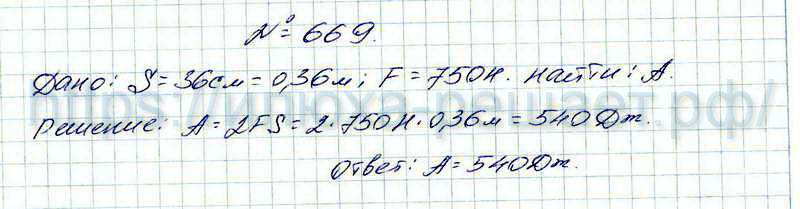 № 669.
Дано: S = 36см = 0,36м; F = 750Н. найти: A.
https://ширха-решает.рф/
Решение: A = 2FS = 2·750Н·0,36м = 540Дж.
Ответ: A = 540Дж.